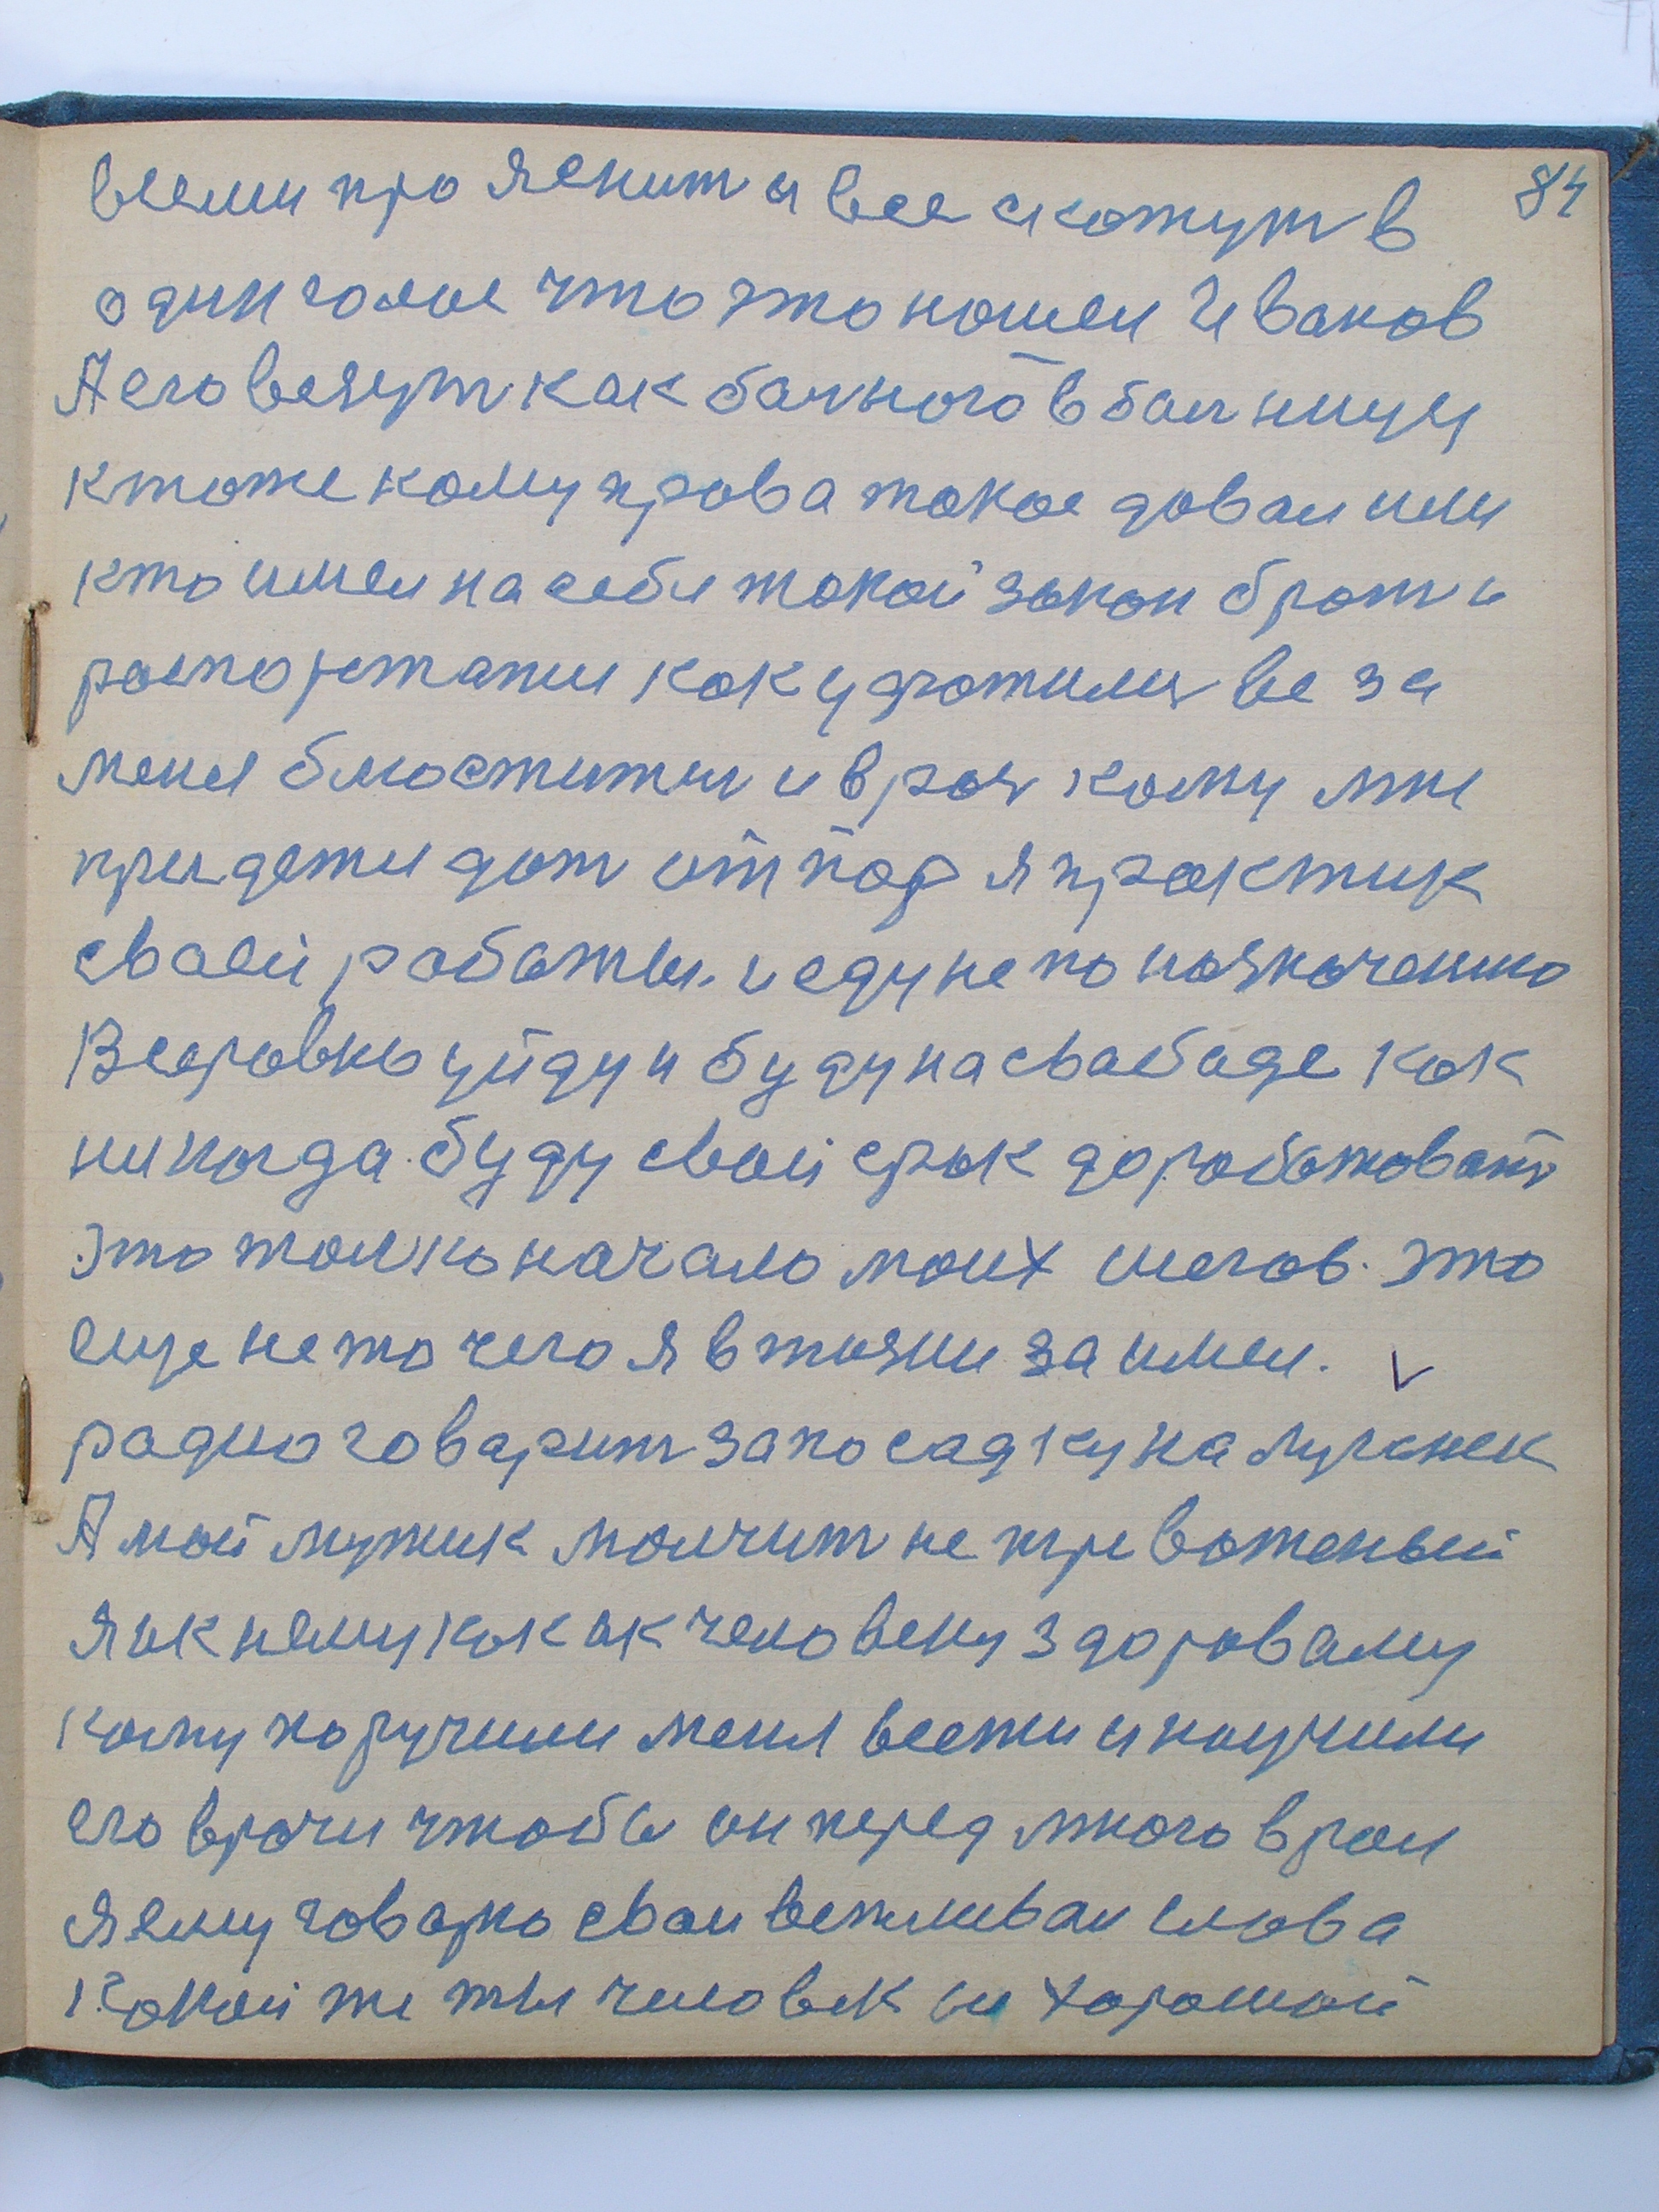 84
всеми прояснит и все скожут в
один голос что это ношел Иванов
А его везут как бального в балницу
ктоже кому права токое довал или
кто имел на себя токой закон брот и
роспорежатии кок удротится ве за
меня блюстители и врач кому мне
придется дот отпор я практик
сваей работы. и еду не по нозночению
Всеровно уйду и буду на свабаде кок
никогда. буду свой срок дороботоват
Это только начало моих шегов. Это
еще не то чего я в жизни заимел.
радио говарит за посадку на луганск
А мой мужик молчит не тревоженый
я и к нему кок ик человеку здороваму
кому поручили меня везти и научили
его врачи чтобы он перед мною врал
я ему говарю свои вежливаи слова
Кокой же ты человек ни хорошой